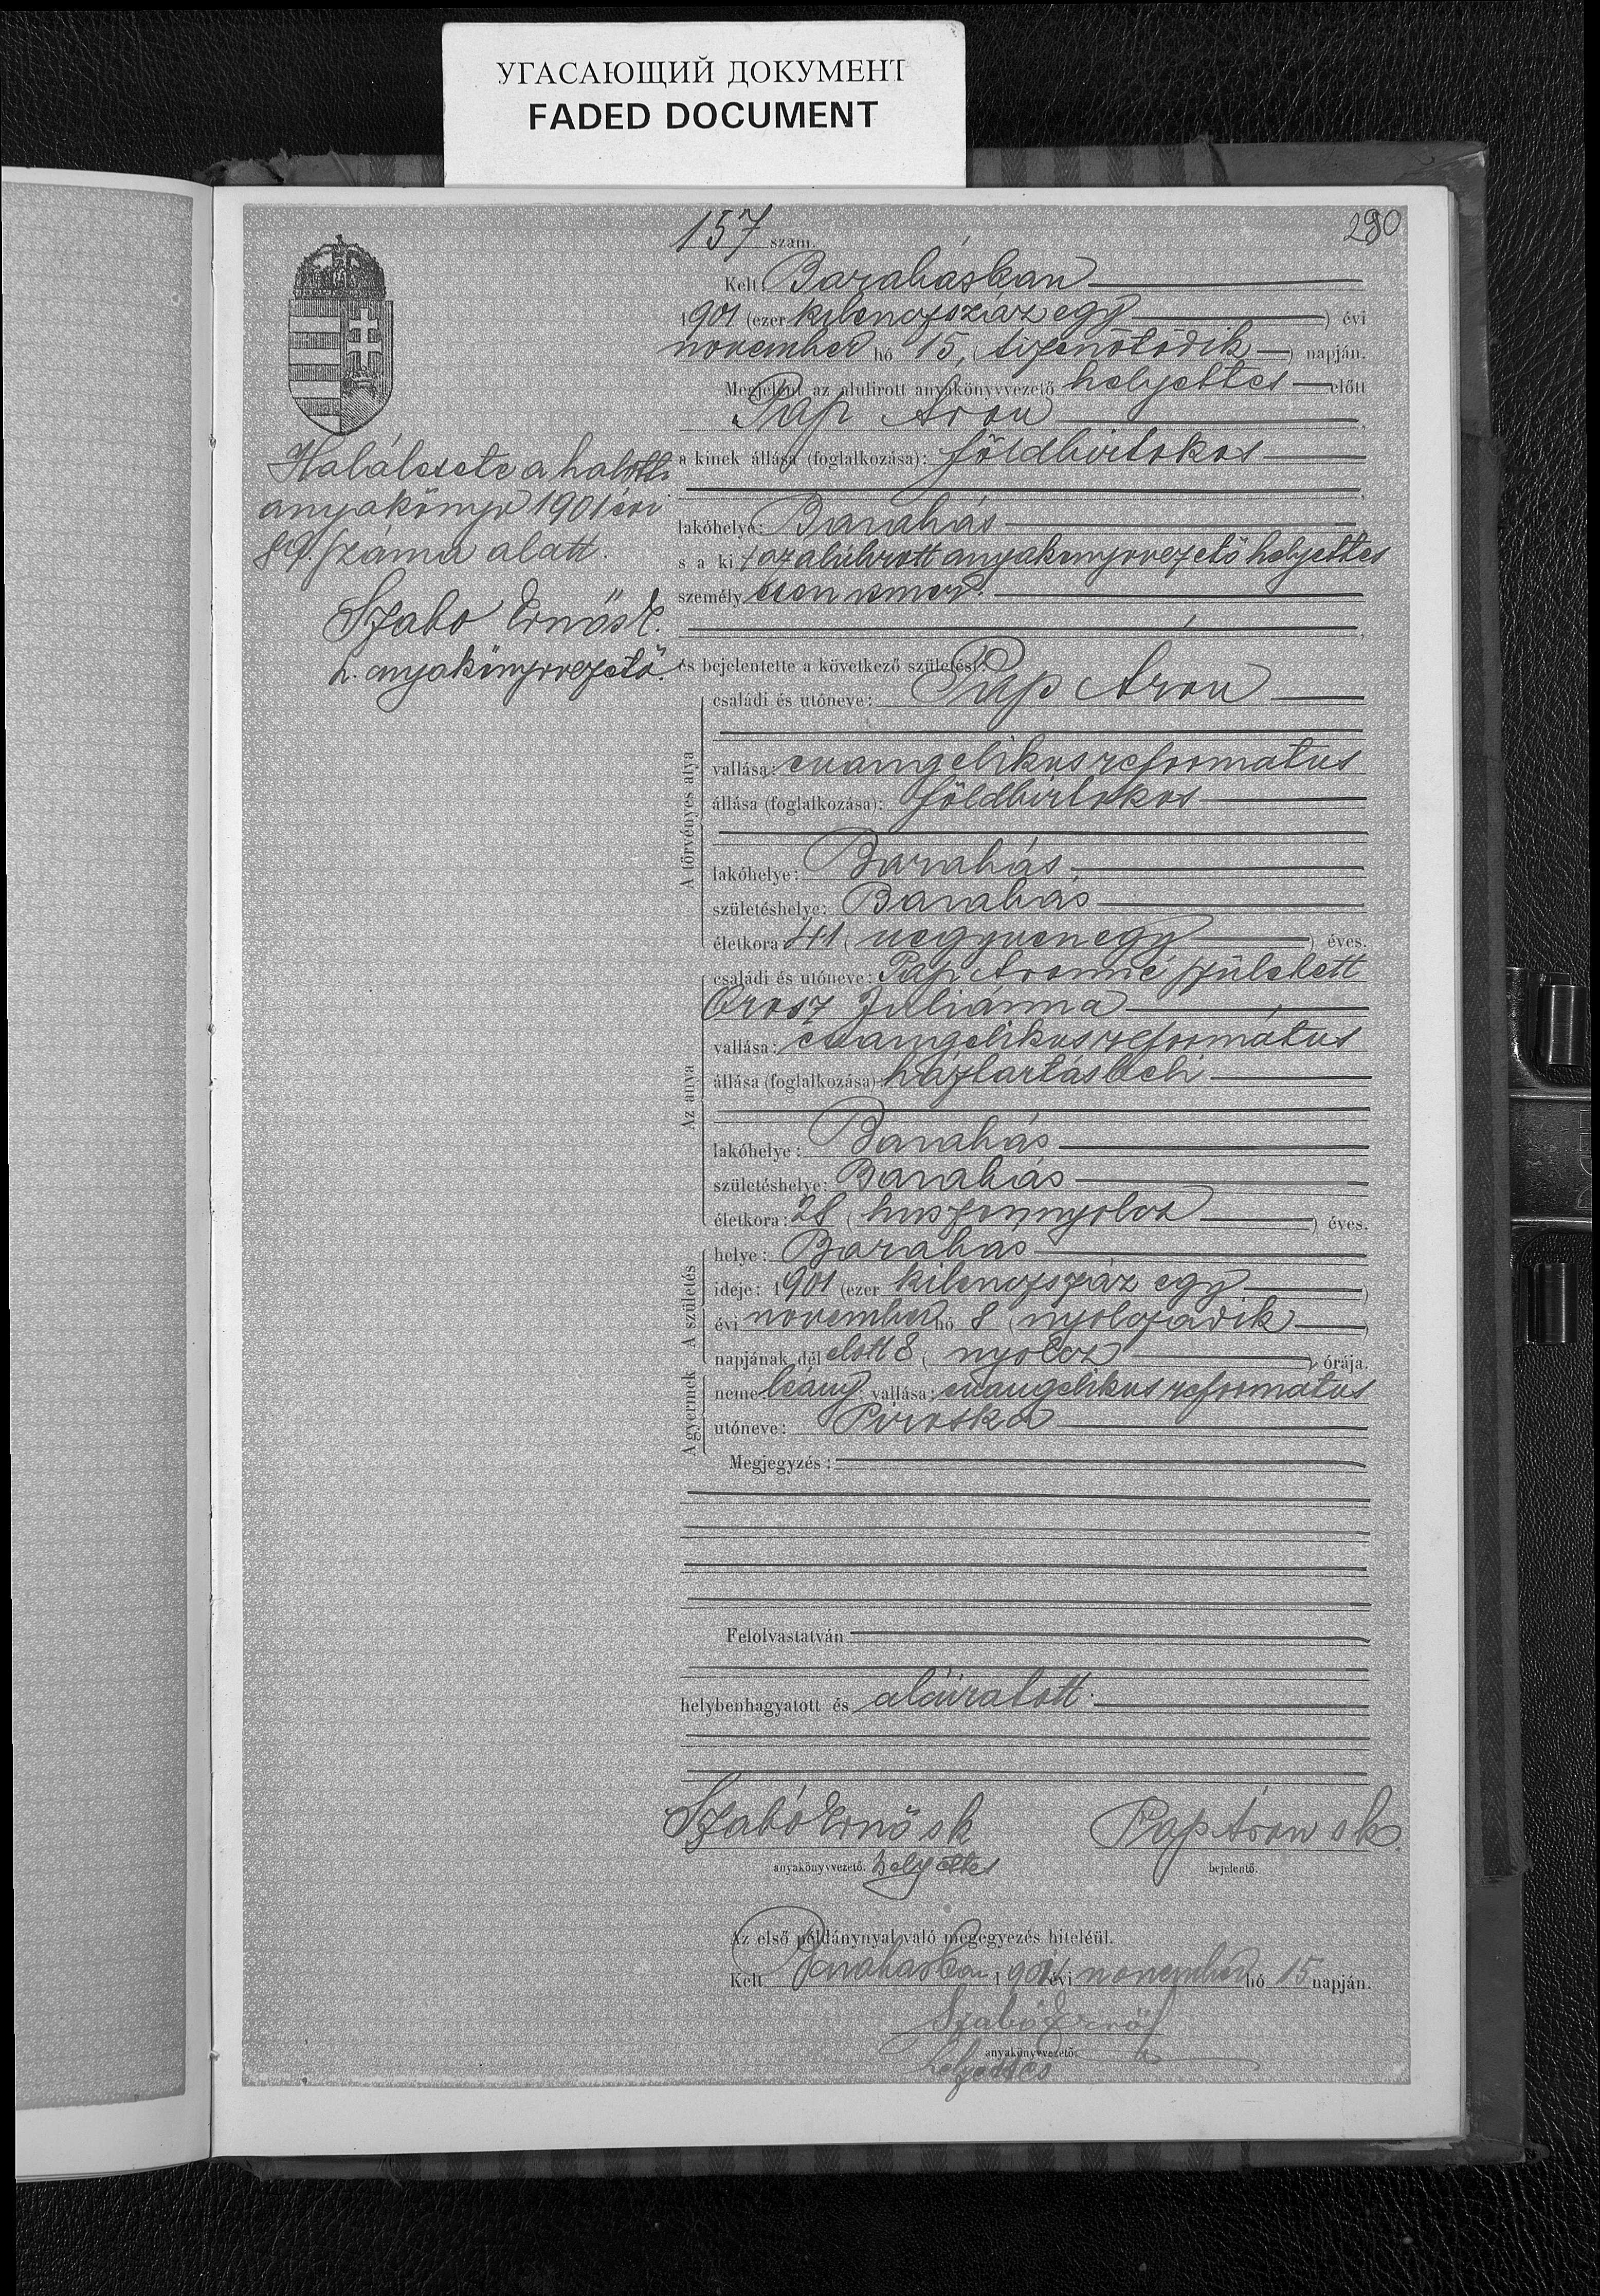 УГАСАЮЩИЙ ДОКУМЕНТ
FADED DOCUMENT
290
157 szám.
Kelt Barabáskan
1901 (ezer kilenczszáz egy) évi
november hó 15. (tizenötödik) napján.
Megjelent az alulirott anyakönyvvezető helyettes előtt
Pap Áron
a kinek állása (foglalkozása): földbirtokos
lakóhelye: Barabás
s a ki az alulirott anyakönyvvezető helyettes
személy esen ismer.
és bejelentette a következő születést:
A törvényes atya
családi és utóneve: Pap Áron
vallása: evangelikus reformatus
állása (foglalkozása): földbirtokos
lakóhelye: Barabás
születéshelye: Barabás
életkora: 41 (negyvenegy) éves.
Az anya
családi és utóneve: Pap Áronné született
Orosz Juliánna
vallása: evangelikus református
állása (foglalkozása): háztartásbeli
lakóhelye: Barabás
születéshelye: Barabás
életkora: 28 (huszonnyolcz) éves.
A születés
helye: Barabás
ideje: 1901 (ezer kilenczszáz egy)
évi november hó 8 (nyolczadik)
napjának dél elott 8 (nyolcz) órája.
A gyermek
neme: leány vallása: evangelikus reformatus
utóneve: Piroska
Megjegyzés:
Felolvastatván
helybenhagyatott és aláiratott.
Szabó Ernő sk
anyakönyvvezető. helyettes
Pap Áron sk.
bejelentő.
Az első példánynyal való megegyezés hiteléül.
Kelt Barabáskan 1901 évi november hó 15 napján.
Szabó Ernő
anyakönyvvezető.
helyettes
Halálesete a halotti
anyakönyv 1901 évi
89. száma alatt.
Szabo Ernő sk.
h. anyakönyvvezető.